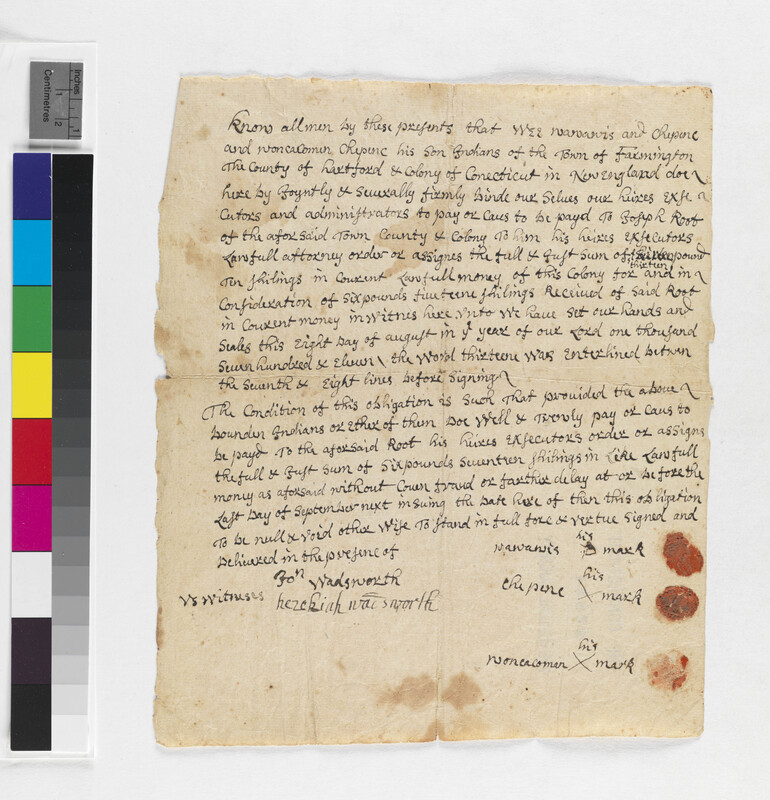 Inches
1
Centimetres
1
2
Know all men by these presents that Wee wawawis and Chepenc
and woncacomen Chepenc his Son Indians of the Town of Farmington
The County of hartford & Colony of Conecticut in New England doe
here by Joyntly & Severally firmly binde our Selves our heires Exse
Cutors and administrators to pay or Caus to be payd To Joseph Root
of the aforSaid Town County & Colony To him his heires Exsecutors
Lawfull attorney order or assignes the full & Just Sum of pound
thirteen
Ten Shilings in Courent Lawfull money of this Colony for and in
Consideration of Sixpounds fiveteene Shilings Received of Said Root
in Courent money in witnes here Unto We have Set our hands and
Seales this Eight Day of august in ye year of our Lord one thousand
Seven hundred & Eleven the Word thirteene Was Enterlined betwen
the Seventh & Eight lines before Signing
The Condition of this obligation is Such That provided the above
bounden Indians or Ether of them Doe Well & Trewly pay or Caus to
be payd To the aforSaid Root his heires Exsecutors order or assigns
the full & Just Sum of Sixpounds Seventeen Shilings in Like Lawfull
money as aforSaid without Coven fraud or farther delay at or before the
Last Day of September next insuing the Date here of then this obligation
To be null & Void other Wise To Stand in full fore & vertue Signed and
Delivered in the presene of
wawawis his mark
Jon Wadsworth
Chepenc his mark
vs Witneses hezekiah wadsworth
woncacomen his mark